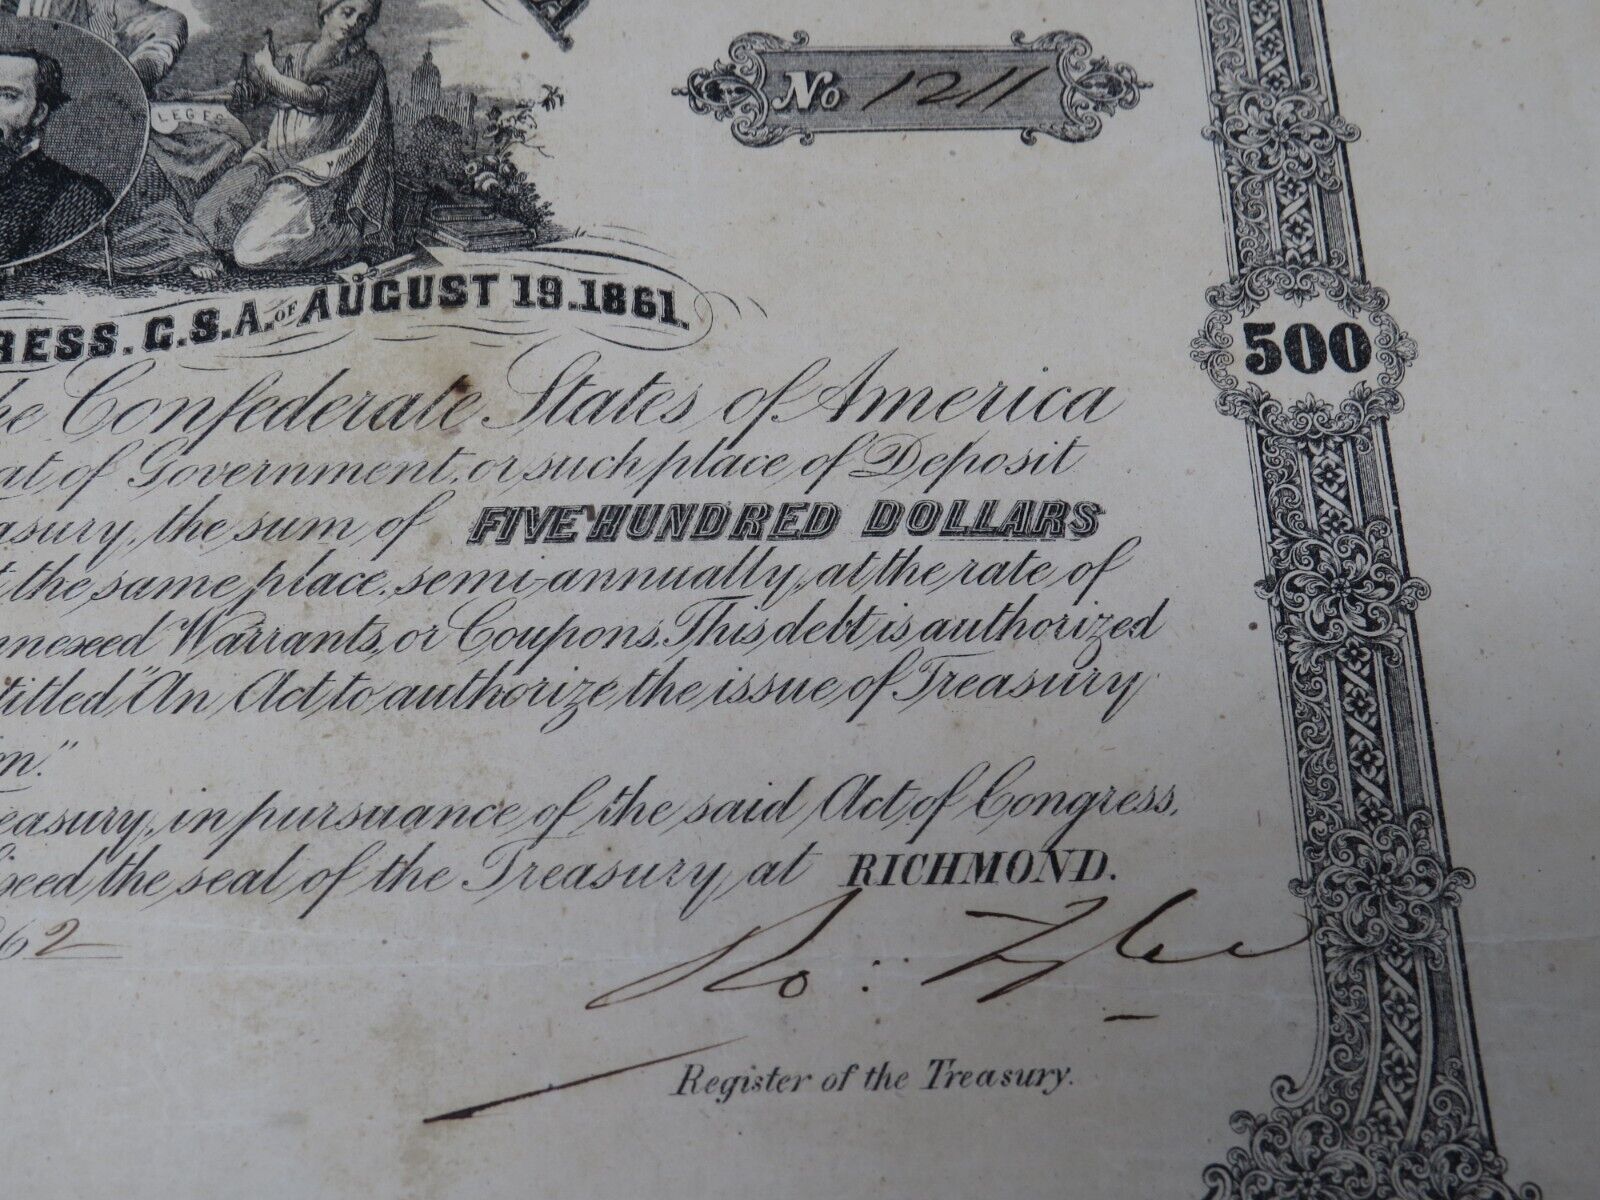 No 1211
LEGES
RESS. C.S.A. OF AUGUST 19. 1861.
500
he Confederate States of America
at of Government, or such place of Deposit
asury, the sum of FIVE HUNDRED DOLLARS
t the same place, semi-annually, at the rate of
nnexed Warrants, or Coupons. This debt is authorized
titled "An Act to authorize the issue of Treasury
on."
easury, in pursuance of the said Act of Congress,
ixed the seal of the Treasury, at RICHMOND.
62
Ro: Tyler
Register of the Treasury.